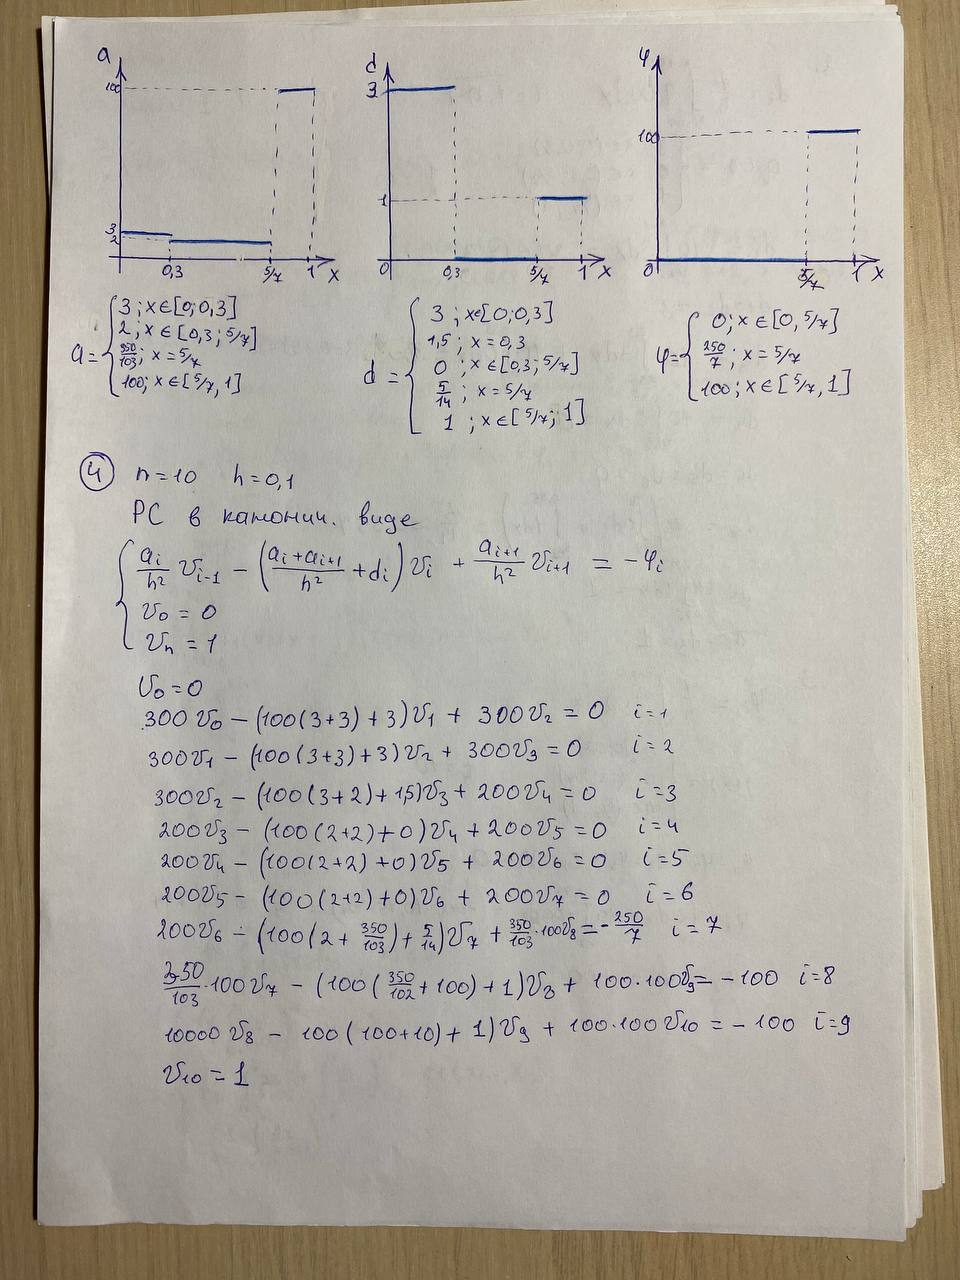 a
100
3
2
0,3
5/7
1
x
d
3
1
0
0,3
5/7
1
x
φ
100
0
5/7
1
x
a = { 3 ; x∈[0;0,3]
2 ; x∈[0,3 ; 5/7]
350/103 ; x = 5/7
100; x∈[5/7, 1]
d = { 3 ; x∈[0;0,3]
1,5 ; x = 0,3
0 ; x∈[0,3; 5/7]
5/14 ; x = 5/7
1 ; x∈[5/7; 1]
φ = { 0; x∈[0, 5/7]
250/7 ; x = 5/7
100; x∈[5/7, 1]
④ n=10 h=0,1
РС в канонич. виде
{ ai/h² vi-1 – (ai+ai+1/h² + di) vi + ai+1/h² vi+1 = -φi
v0 = 0
vn = 1
v0 = 0
300v0 – (100(3+3)+3)v1 + 300v2 = 0 i=1
300v1 – (100(3+3)+3)v2 + 300v3 = 0 i=2
300v2 – (100(3+2)+1,5)v3 + 200v4 = 0 i=3
200v3 – (100(2+2)+0)v4 + 200v5 = 0 i=4
200v4 – (100(2+2)+0)v5 + 200v6 = 0 i=5
200v5 – (100(2+2)+0)v6 + 200v7 = 0 i=6
200v6 – (100(2 + 350/103) + 5/14)v7 + 350/103·100v8 = -250/7 i=7
350/103·100v7 – (100(350/102 + 100) + 1)v3 + 100·100v9 = -100 i=8
10000v8 – 100(100+10) + 1)v9 + 100·100v10 = -100 i=9
v10 = 1